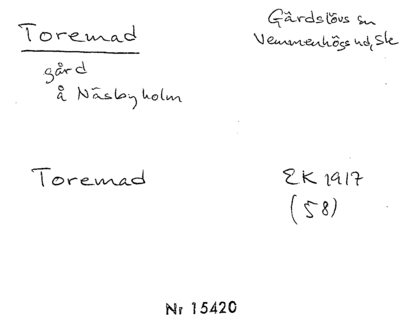 Toremad
Gärdslövs sn
Vemmenhögs hd, Sk
gård
å Näsbyholm
Toremad
EK 1917
(58)
Nr 15420